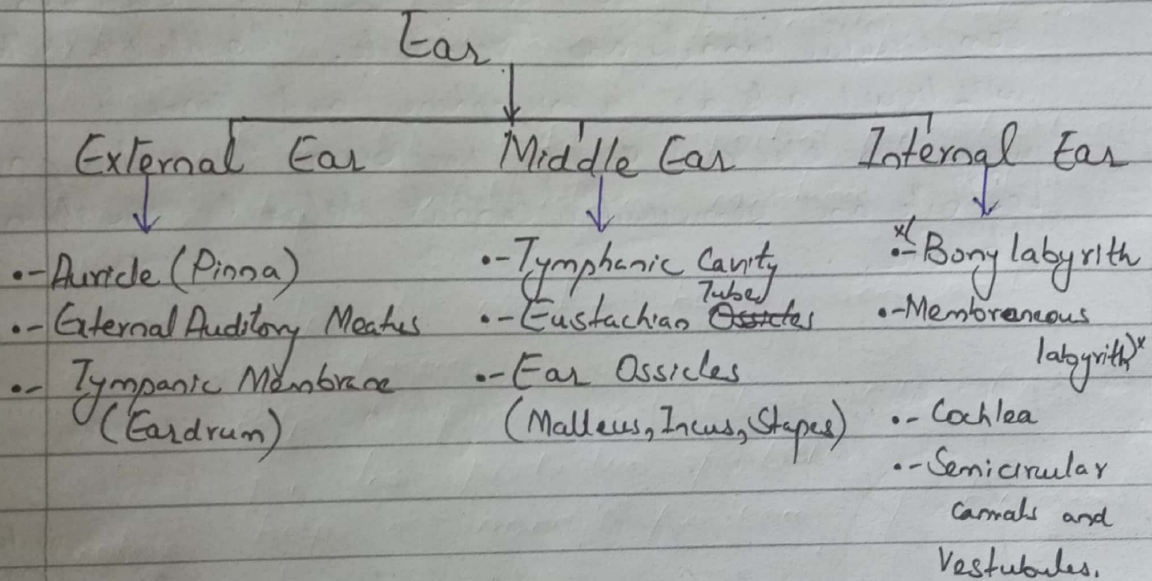 Ear
External Ear Middle Ear Internal Ear
•- Auricle (Pinna)
•- External Auditory Meatus
•- Tympanic Membrane
(Eardrum)
•- Tymphanic Cavity
•- Eustachian Tube
•- Ear Ossicles
(Malleus, Incus, Stapes)
x( •- Bony labyrith
•- Membraneous
labyrith)x
•- Cochlea
•- Semicirular
cannals and
Vestubules.